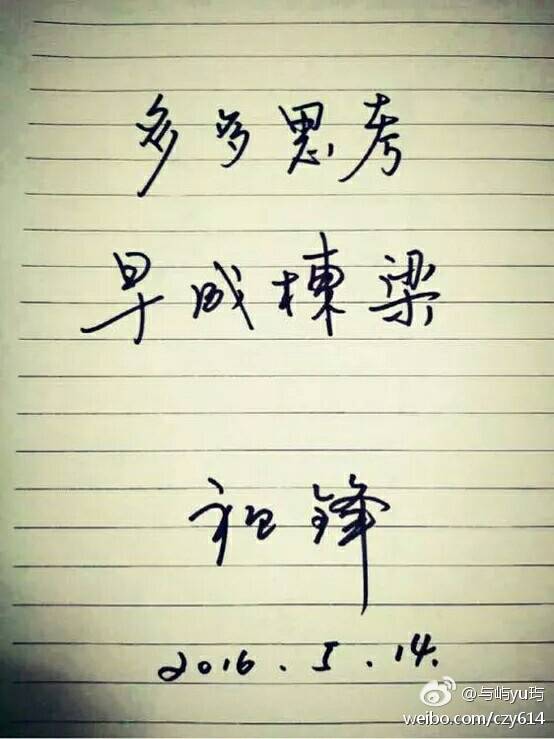 多多思考
早成栋梁
祖锋
2016.5.14.
@与屿yu玙
weibo.com/czy614